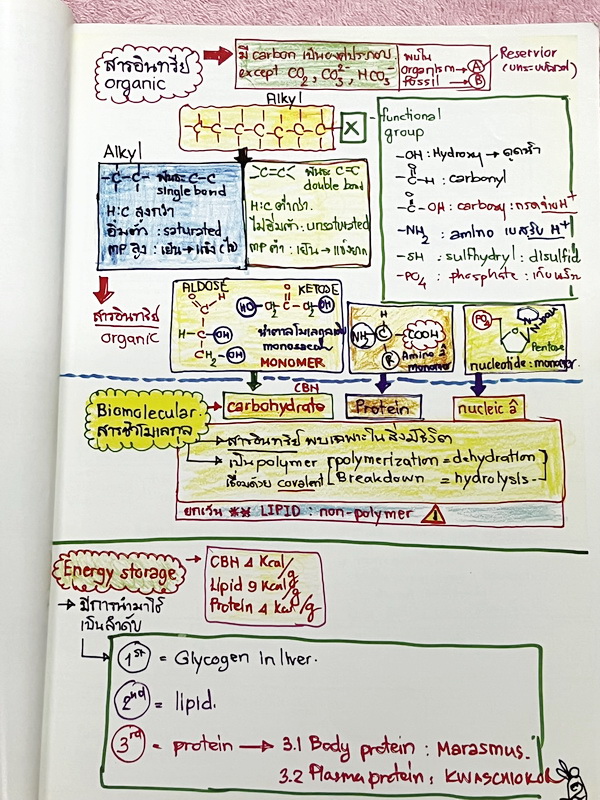 สารอินทรีย์
organic
มี carbon เป็นองค์ประกอบ
except CO2, CO3 2-, HCO3 -
พบใน
organism → A
fossil → B
Reservior
Alkyl
-C-C-C-C-C-C-C- X
functional
group
-OH : Hydroxy → ดูดน้ำ
O
-C-H : carbonyl
O
-C-OH : carboxy : กรดจ่าย H+
-NH2 : amino เบสรับ H+
-SH : sulfhydryl : disulfid
-PO4 : phosphate : เก็บ
Alkyl
-C-C- พันธะ C-C
single bond
H:C สูงกว่า
อิ่มตัว : saturated
MP สูง : เย็น → แข็ง (ไข)
>C=C< พันธะ C=C
double bond
H:C ต่ำกว่า
ไม่อิ่มตัว : unsaturated
MP ต่ำ : เย็น → แข็งยาก
สารอินทรีย์
organic
ALDOSE
O H
C
H-C-OH
CH2-OH
KETOSE
O
HO CH2 C CH2 OH
น้ำตาลโมเลกุลเดี่ยว
MONOMER
H
NH2 C COOH
R Amino â
monomer
PO4
N-Base
Pentose
nucleotide : monomer
Biomolecular
สารชีวโมเลกุล
CBH
carbohydrate
Protein
nucleic â
→ สารอินทรีย์ พบเฉพาะในสิ่งมีชีวิต
→ เป็น polymer [polymerization = dehydration]
เชื่อมด้วย covalent [Breakdown = hydrolysis]
ยกเว้น ** LIPID : non-polymer !
Energy storage
CBH 4 Kcal/g
Lipid 9 Kcal/g
Protein 4 Kcal/g
→ มีการนำมาใช้
เป็นลำดับ
1st = Glycogen in liver.
2nd = lipid.
3rd = protein → 3.1 Body protein : Marasmus.
3.2 Plasma protein : KWASCHIOKOR